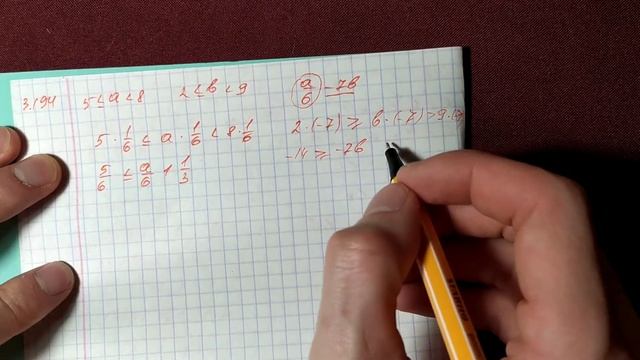 3.194 5 ≤ a < 8 2 ≤ b < 9 a/6 - 7b
5 · 1/6 ≤ a · 1/6 < 8 · 1/6
5/6 ≤ a/6 < 1 1/3
2 · (-7) ≥ b · (-7) > 9 · (-7)
-14 ≥ -7b